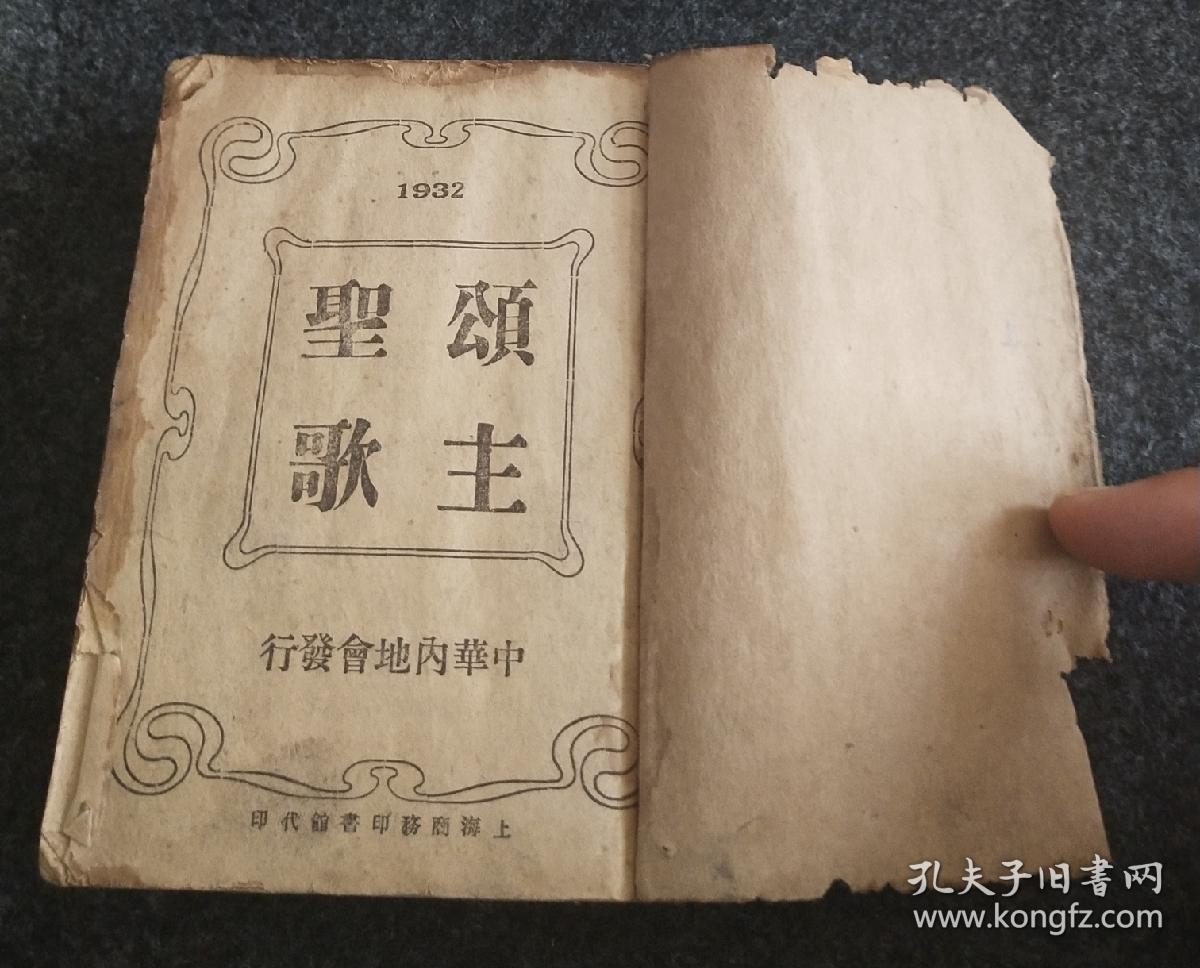 1932
頌主
聖歌
中華內地會發行
上海商務印書館代印
孔夫子旧書网
www.kongfz.com